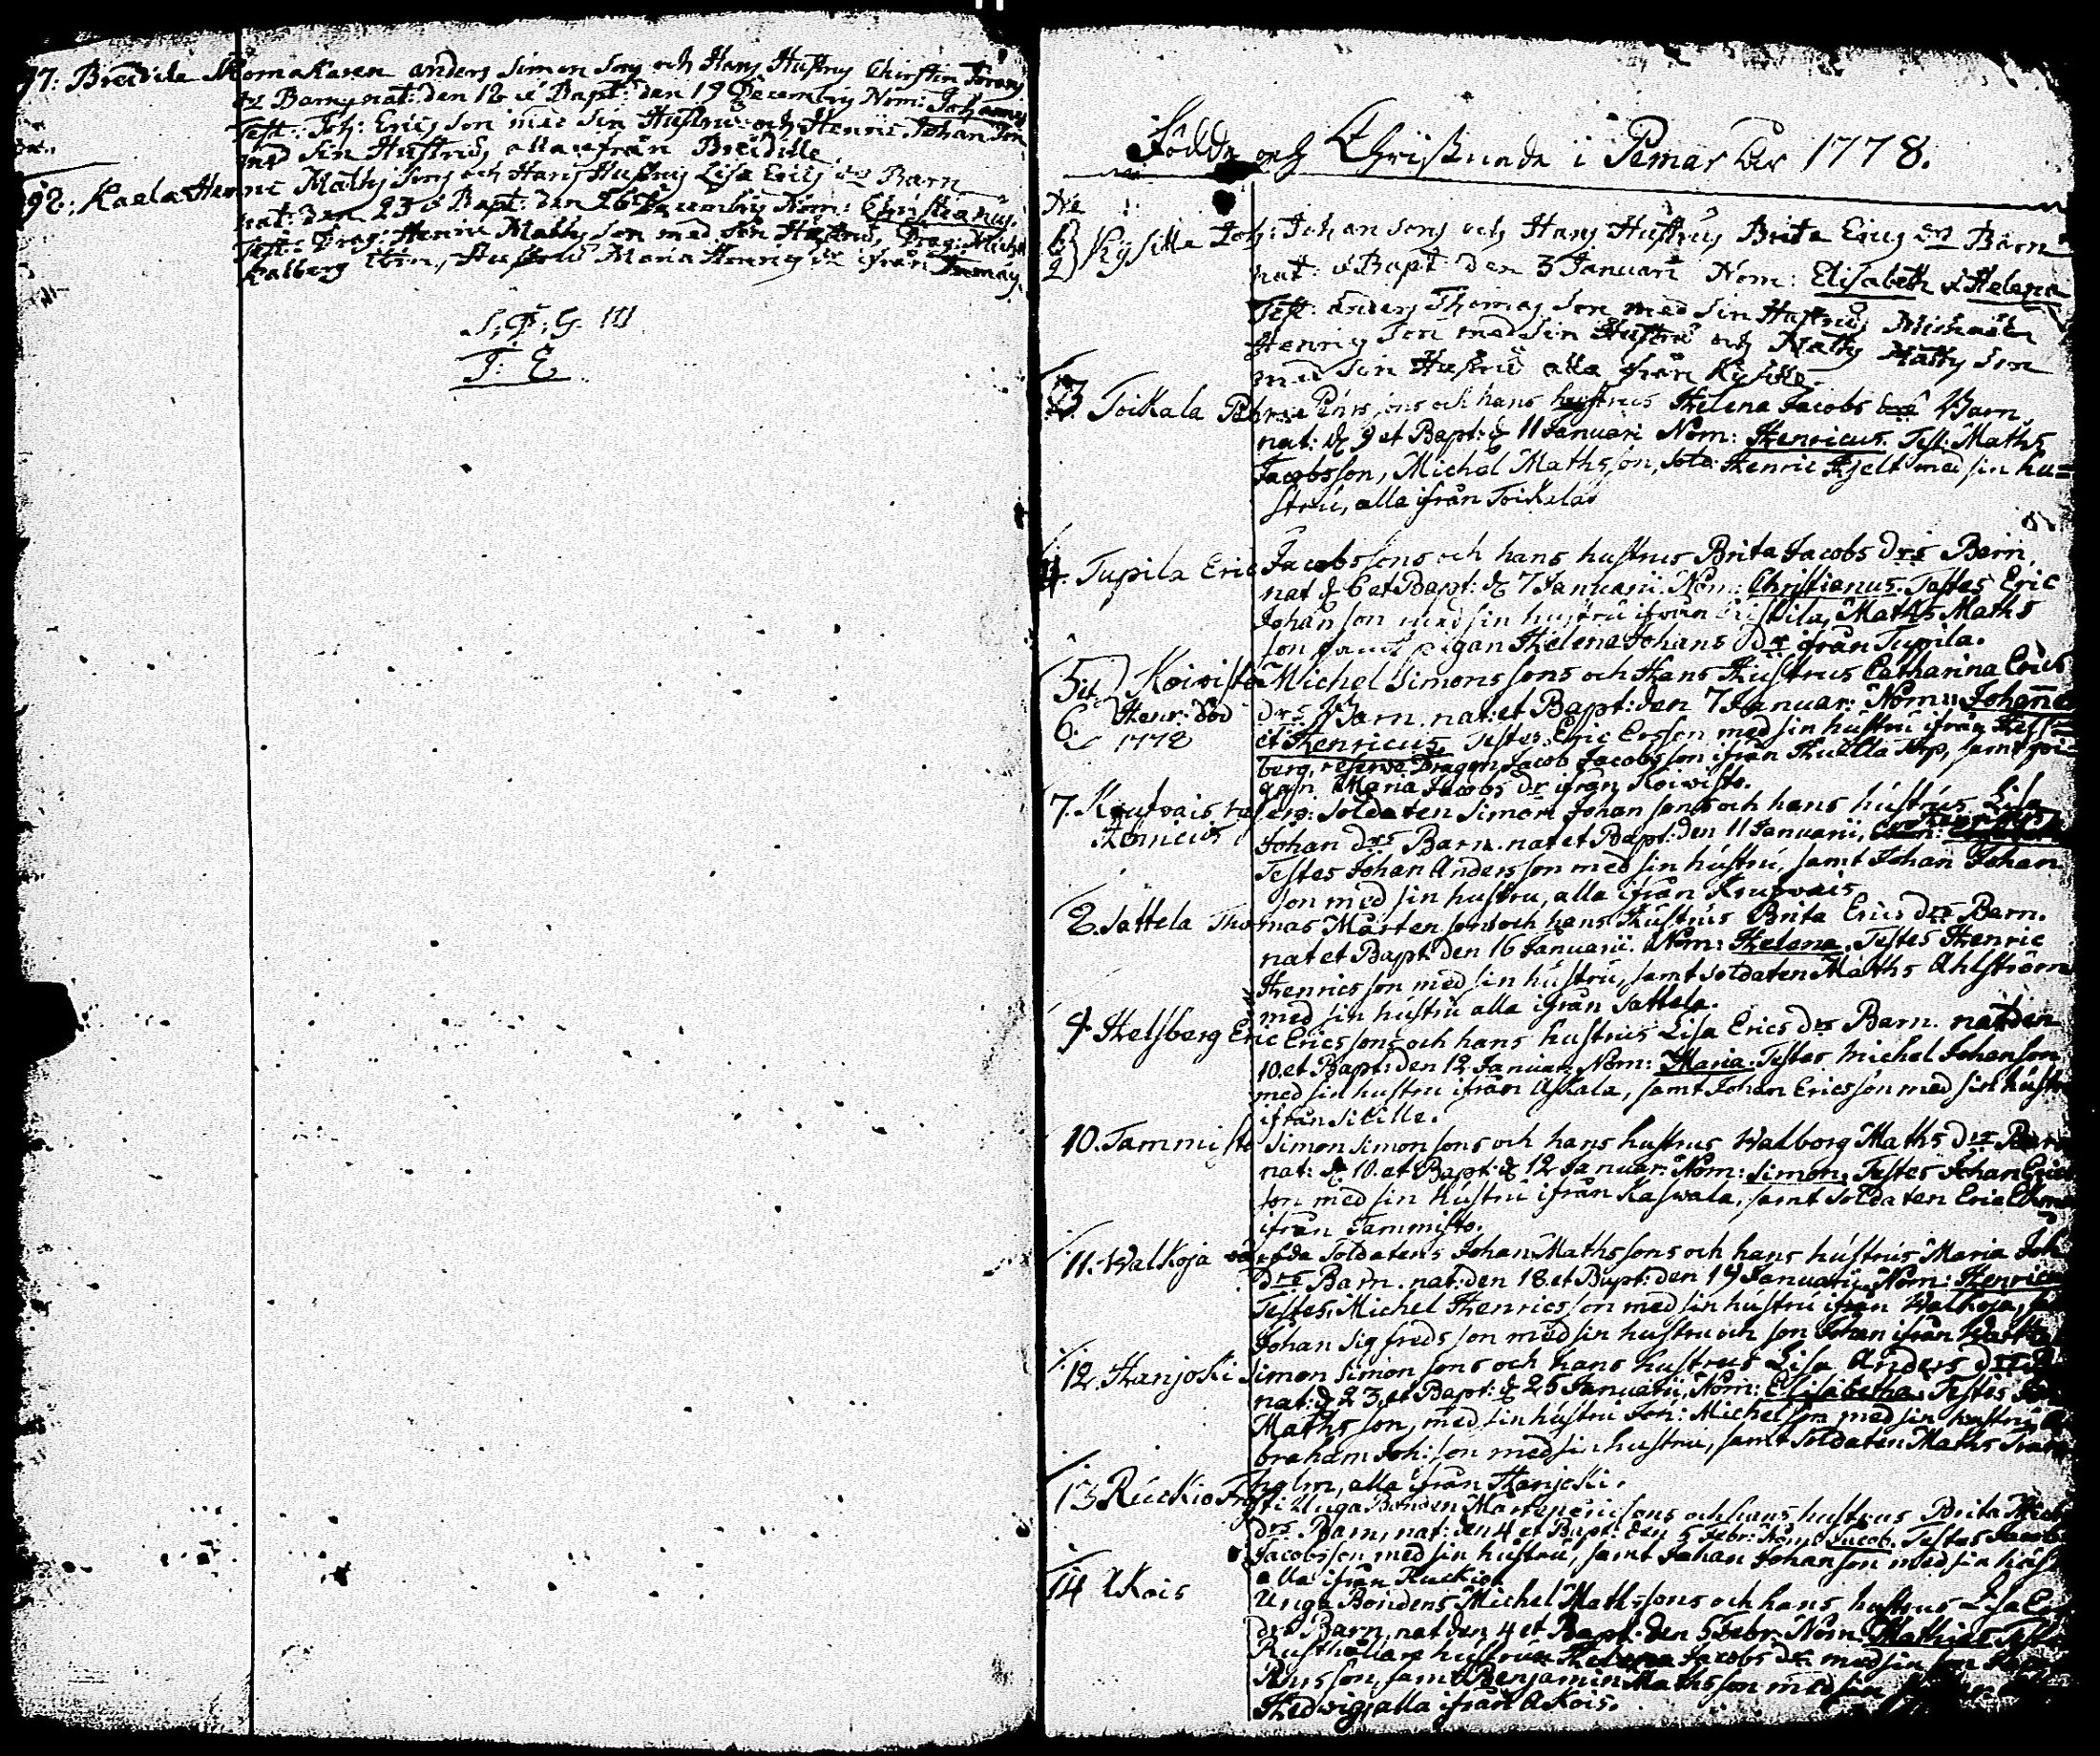 97. Breidila Skomakaren anders Simon Sons och Hans Hustrus Christin Jorans
drs Barn nat: den 18 & Bapt: den 19 Decembris Nom: Johannes
Test: Joh: Erics Son med Sin Hustru och Henric Johan Son
med Sin Hustru, alla ifrån Breidille.
98. Kaela Henric Maths Sons och Hans Hustrus Lisa Erics drs Barn
nat: den 23 & Bapt: den 26 Decembris Nom: Christianus.
Test: Drag: Henric Maths Son med Sin Hustru, Drag: Michel
Kalberg Hustru Maria Henrics dr ifrån
S. D. G.
Födde och Christnade i Pemar År 1778.
No
1
2 Kysille Joh: Johan Sons och Hans Hustrus Brita Erics drs Barn
nat: & Bapt: den 3 Januarii Nom: Elisabeth & Helena
Test: anders Thomas Son med Sin Hustru, Michael
Henrics Son med Sin Hustru och Maths Maths Son
med Sin Hustru alla ifrån Kysille.
3. Toikala Petter Pehrs sons och hans hustrus Helena Jacobs drs Barn,
nat: d 9 et Bapt: d 11 Januari Nom: Henricus. Test: Maths
Jacobsson, Michel Mathsson, Sold: Henric Hjelt med sin hu=
stru, alla ifrån Toikala
4. Tupila Eric Jacobssons och hans hustrus Brita Jacobs drs Barn,
nat d 6 et Bapt: d 7 Januarii. Nom: Christianus. Testes Eric
Johan son med sin hustru ifrån Maths Maths
son samt pigan Helena Johans dr ifrån Tupila.
5. Koivisto Michel Simons sons och Hans Hustrus Catharina Erics
6. Henr: död drs Barn. nat: et Bapt: den 7 Januar: Nom: Johannes
1778 et Henricus. Testes: Eric Ersson med sin hustru ifrån Hels=
berg, reserve Dragon Jacob Jacobsson ifrån Huilla torp, samt pi=
gan Maria Jacobs dr ifrån Koivisto.
7. Krufvais reserv: Soldaten Simon Johan sons och hans hustrus Lisa
Henricus Johan drs Barn. nat et Bapt: den 11 Januarii,
Testes Johan Andersson med sin hustru, samt Johan Johan
son med sin hustru, alla ifrån Krufvais
8. Sattela Thomas Mårten sons och hans Hustrus Brita Erics drs Barn.
nat et Bapt: den 16 Januarii. Nom: Helena. Testes Henric
Henrics son med sin hustru, samt soldaten Maths Ahlström
med sin hustru alla ifrån Sattela.
9. Helsberg Eric Ericssons och hans hustrus Lisa Erics drs Barn. nat den
10. et Bapt: den 12 Januar: Nom: Maria. Testes Michel Johanson
med sin hustru ifrån Askala, samt Johan Ericsson med sin hustr
ifrån Sikille.
10. Tammisto Simon Simon sons och hans hustrus Walborg Maths drs Barn
nat: d 10. et Bapt: d 12 Januar: Nom: Simon. Testes Johan Erics
son med sin hustru ifrån Kaswala, samt soldaten Eric
ifrån Tammisto.
11. Walkoja Soldatens Johan Mathssons och hans hustrus Maria Joh
drs Barn. nat: den 18. et Bapt: den 19 Januarii, Nom: Henricus
Testes: Michel Henricsson med sin hustru ifrån Walkoja,
Johan Sigfreds son med sin hustru och son Johan ifrån
12. Hanjoki Simon Simon sons och hans hustrus Lisa Anders drs
nat: d 23. et Bapt: d 25 Januarii, Nom: Elisabetha. Testes
Mathsson, med sin hustru Joh: Michelson med sin hustru A
braham Joh: son med sin hustru, samt soldaten Maths
holm, alla ifrån Hanjoki.
13 Ruckio Unga Bonden Mårten Ericsons och hans hustrus Brita Mich
drs Barn, nat: den 4 et Bapt: den 5 Febr: Nom: Jacob. Testes Jacob
Jacobsson med sin hustru, samt Johan Johanson med sin hust
alla ifrån Ruckio.
14 Akois Unga Bondens Michel Mathssons och hans hustrus Lisa Er
drs Barn, nat den 4 et Bapt: den 5 Febr: Nom: Mathias Test
Rusthållare hustrun Helena Jacobs dr med sin son
son, samt Benjamin Mathsson med sin
Hedwig, alla ifrån Akois.